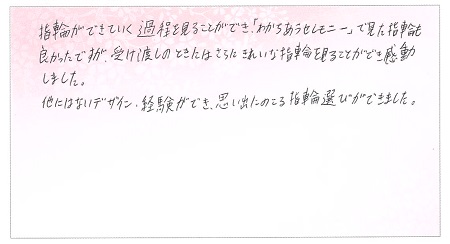 指輪ができていく過程を見ることができ、「わかちあうセレモニー」で見た指輪も
良かったですが、受け渡しのときにはさらにきれいな指輪を見ることができ感動
しました。
他にはないデザイン、経験ができ、思い出にのこる指輪選びができました。